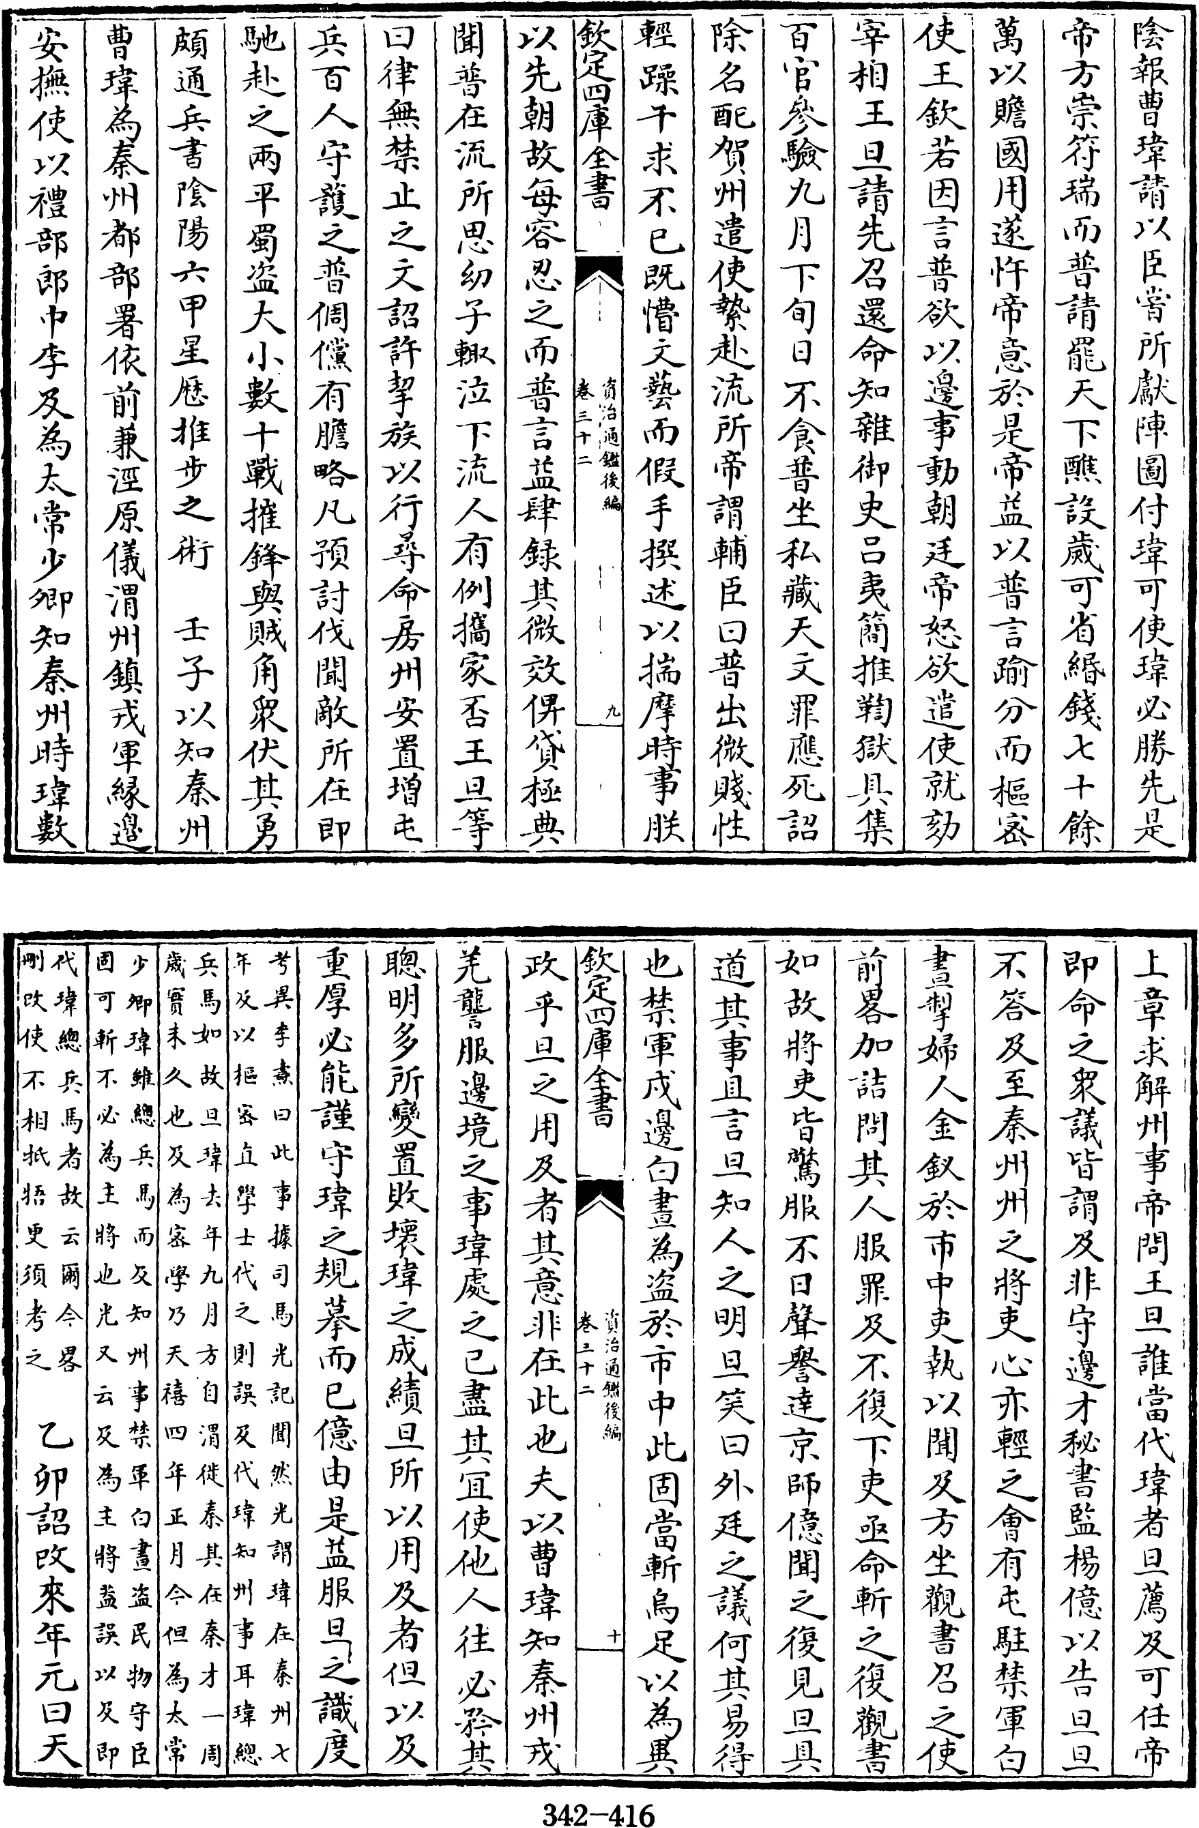 陰報曹瑋請以臣嘗所獻陣圖付瑋可使瑋必勝先是
帝方崇符瑞而普請罷天下醮設歲可省緡錢七十餘
萬以贍國用遂忤帝意於是帝益以普言踰分而樞密
使王欽若因言普欲以邊事動朝廷帝怒欲遣使就劾
宰相王旦請先召還命知雜御史呂夷簡推鞫獄具集
百官參驗九月下旬日不食普坐私藏天文罪應死詔
除名配賀州遣使縶赴流所帝謂輔臣曰普出微賤性
輕躁干求不已既懵文藝而假手撰述以揣摩時事朕
欽定四庫全書
資治通鑑後編
卷三十二
九
以先朝故每容忍之而普言益肆録其微效俾貸極典
聞普在流所思幼子輙泣下流人有例攜家否王旦等
曰律無禁止之文詔許挈族以行尋命房州安置增屯
兵百人守護之普倜儻有膽略凡預討伐聞敵所在即
馳赴之兩平蜀盜大小數十戰摧鋒與賊角衆伏其勇
頗通兵書陰陽六甲星歴推步之術　壬子以知秦州
曹瑋為秦州都部署依前兼涇原儀渭州鎮戎軍緣邊
安撫使以禮部郎中李及為太常少卿知秦州時瑋數
上章求解州事帝問王旦誰當代瑋者旦薦及可任帝
即命之衆議皆謂及非守邊才秘書監楊億以告旦旦
不答及至秦州州之將吏心亦輕之會有屯駐禁軍白
晝掣婦人金釵於市中吏執以聞及方坐觀書召之使
前畧加詰問其人服罪及不復下吏亟命斬之復觀書
如故將吏皆驚服不日聲譽達京師億聞之復見旦具
道其事且言旦知人之明旦笑曰外廷之議何其易得
也禁軍戍邊白晝為盜於市中此固當斬烏足以為異
欽定四庫全書
資治通鑑後編
卷三十二
十
政乎旦之用及者其意非在此也夫以曹瑋知秦州戎
羌讋服邊境之事瑋處之已盡其宜使他人往必矜其
聰明多所變置敗壞瑋之成績旦所以用及者但以及
重厚必能謹守瑋之規摹而已億由是益服旦之識度
考異李燾曰此事據司馬光記聞然光謂瑋在秦州七
年及以樞密直學士代之則誤及代瑋知州事耳瑋總
兵馬如故旦瑋去年九月方自渭徙秦其在秦才一周
歲實未久也及為密學乃天禧四年正月今但為太常
少卿瑋雖總兵馬而及知州事禁軍白晝盜民物守臣
固可斬不必為主將也光又云及為主將葢誤以及即
代瑋總兵馬者故云爾今畧
刪改使不相牴牾更須考之
乙卯詔改來年元曰天
342-416